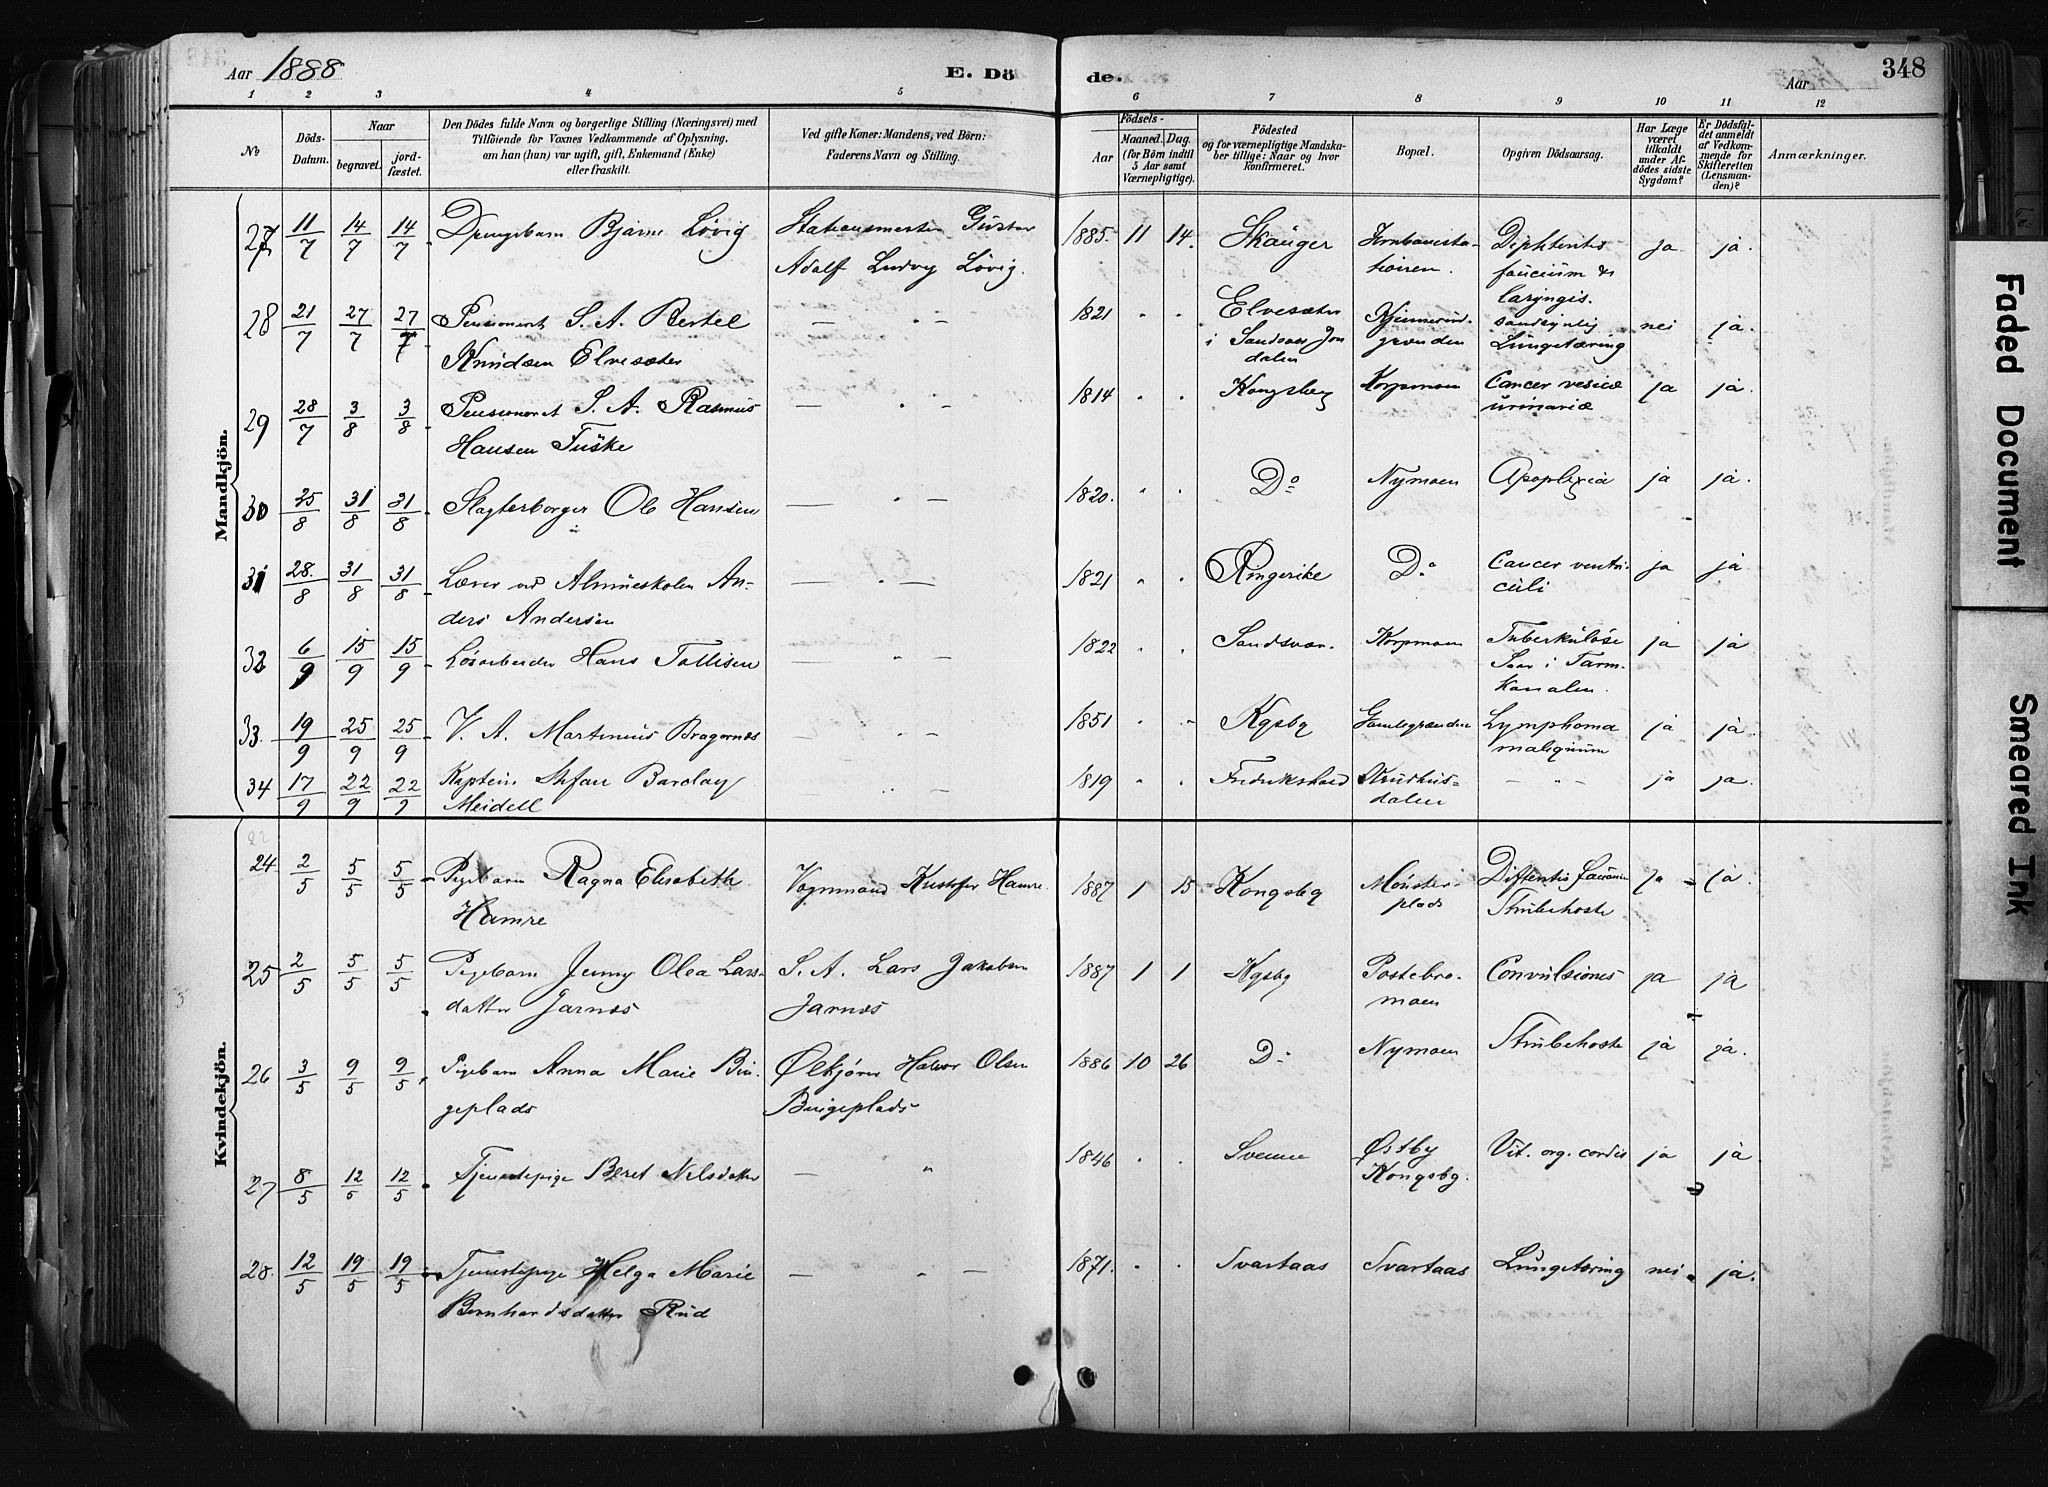 Aar 1888 E. Dö de. Aar 348
1 2 3 4 5 6 7 8 9 10 11 12
No.
Döds-Datum.
Naar
begravet.
jord-fæstet.
Den Dödes fulde Navn og borgerlige Stilling (Næringsvei) med
Tilföiende for Voxnes Vedkommende af Oplysning,
om han (hun) var ugift, gift, Enkemand (Enke)
eller fraskilt.
Ved gifte Koner: Mandens, ved Börn:
Faderens Navn og Stilling.
Födsels-
Aar
Maaned. Dag.
(for Börn indtil
5 Aar samt
Værnepligtige).
Födested
og for værnepligtige Mandska-
ber tillige: Naar og hvor
konfirmeret.
Bopæl.
Opgiven Dödsaarsag.
Har Læge
været
tilkaldt
under Af-
dödes sidste
Sygdom?
Er Dödsfal-
det anmeldt
af Vedkom-
mende for
Skifteretten
(Lensman-
den)?
Anmærkninger.
Mandkjön.
27 11/7 14/7 14/7 Drengebarn Bjarne Lövig Stationsmester Gustav 1885. 11 14. Skauger Jernbanesta- Diphteritis ja ja.
Adolf Ludvig Lövig. tionen. faucium &
laryngis.
28 21/7 27/7 27/7 Pensioneret S. A. Bertel — " — 1821 " " Elvesæter sandsynlig nei ja.
Knudsen Elvesæter i Sandsvær Jon grunden Lungetæring
dalen
29 28/7 3/8 3/8 Pensioneret S. A. Rasmus — " — 1814 " " Kongsberg Korpmoen Cancer vesicæ ja ja.
Hansen Tuske urinariæ
30 25/8 31/8 31/8 Slagterborger Ole Hansen — " — 1820. " " Do Nymoen Apoplexia ja ja.
31 28./8 31/8 31/8 Lærer ved Almueskolen An- — " — 1821 " " Ringerike Do Cancer ventri- ja ja
ders Andersen culi
32 6/9 15/9 15/9 Lösarbeider Hans Tollisen — " — 1822 " " Sandsvær. Korpmoen Tuberkulöse ja ja
Saar i Tarm-
kanalen.
33. 19/9 25/9 25/9 V. A. Martinius Bragernæs — " — 1851 " " Kgsbg Gamlegrænden Lymphoma ja ja.
malignum
34 17/9 22/9 22/9 Kaptein Stefan Barclay — " — 1819 " " Fredrikshald Krudhus- — " — ja ja.
Meidell dalen
Kvindekjön.
24 2/5 5/5 5/5 Pigebarn Ragna Elisabeth Vognmand Kristofer Hamre. 1887 1 15 Kongsbg Mynster- Difteritis faucium ja ja.
Hamre plads Strubehoste
25 2/5 5/5 5/5 Pigebarn Jenny Olea Lars- S. A. Lars Jakobsen 1887 1 1 Kgsbg Postebro- Convulsiones ja ja
datter Jarnæs Jarnæs moen
26 3/5 9/5 9/5 Pigebarn Anna Marie Bin- Ølkjører Halvor Olsen 1886 10 26 Do Nymoen Strubehoste ja ja.
geplads Bingeplads
27 8/5 12/5 12/5 Tjenestepige Beret Nilsdatter — " 1846 " " Svenne Østby Vit. org. cordis ja ja
Kongsbg.
28. 12/5 19/5 19/5 Tjenestepige Helga Marie — " — 1871. " " Svartaas Svartaas Lungetæring nei ja.
Bernhardsdatter Rud
Faded Document
Smeared Ink